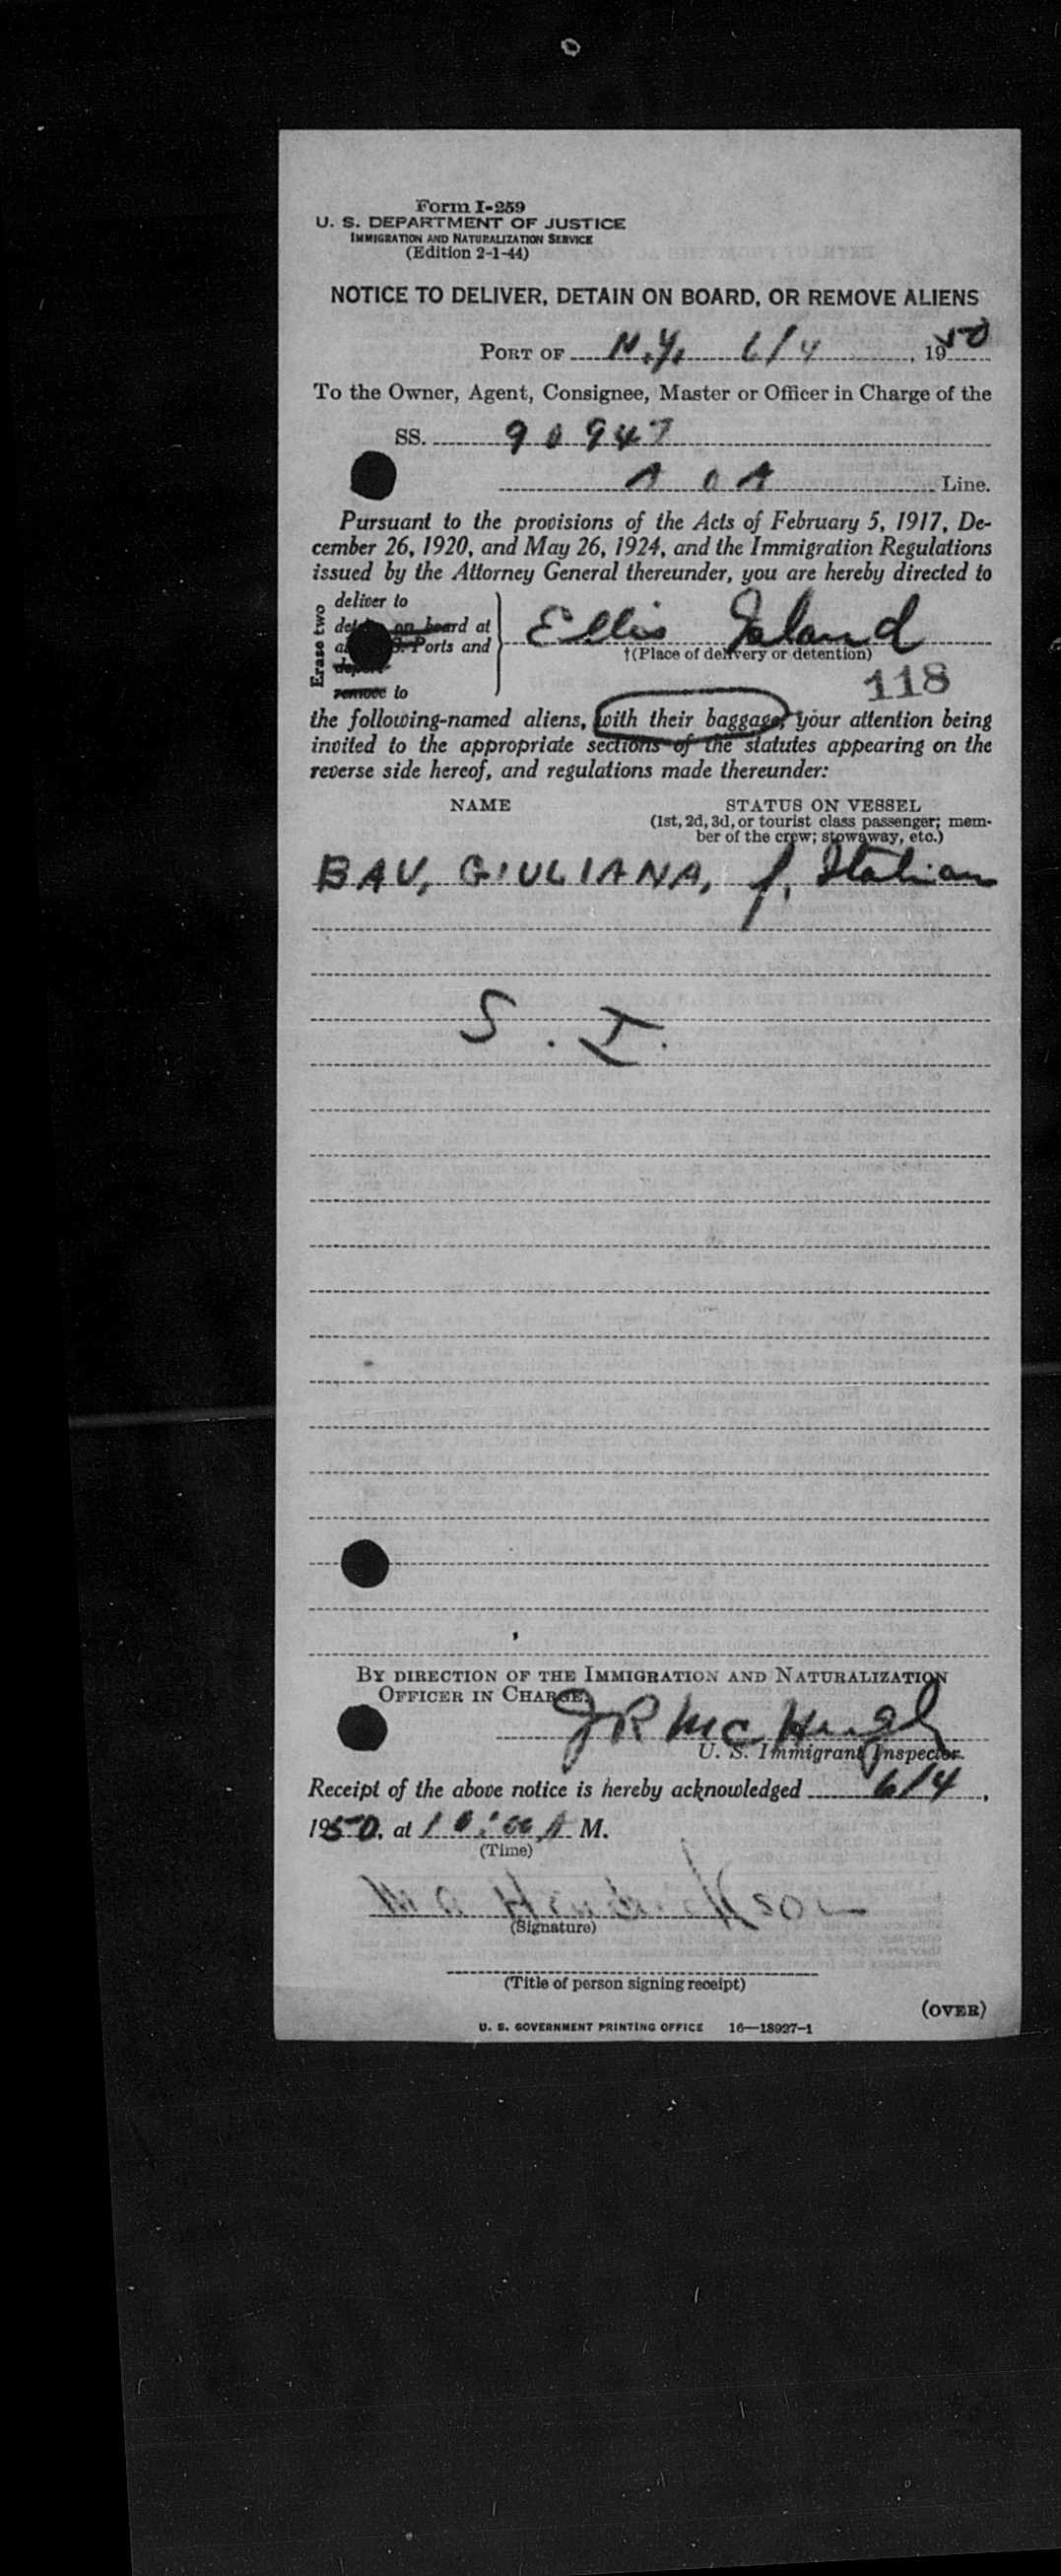 Form I-259
U. S. DEPARTMENT OF JUSTICE
IMMIGRATION AND NATURALIZATION SERVICE
(Edition 2-1-44)
NOTICE TO DELIVER, DETAIN ON BOARD, OR REMOVE ALIENS
PORT OF N.Y. 6/4, 1950
To the Owner, Agent, Consignee, Master or Officer in Charge of the
SS. 90947
A O A Line.
Pursuant to the provisions of the Acts of February 5, 1917, De-
cember 26, 1920, and May 26, 1924, and the Immigration Regulations
issued by the Attorney General thereunder, you are hereby directed to
Erase two
deliver to
on board at
Ports and
remove to
Ellis Island
†(Place of delivery or detention)
118
the following-named aliens, with their baggage, your attention being
invited to the appropriate sections of the statutes appearing on the
reverse side hereof, and regulations made thereunder:
NAME STATUS ON VESSEL
(1st, 2d, 3d, or tourist class passenger; mem-
ber of the crew; stowaway, etc.)
BAV, GIULIANA, f. Italian
S. I.
BY DIRECTION OF THE IMMIGRATION AND NATURALIZATION
OFFICER IN CHARGE.
JR McHugh
U. S. Immigrant Inspector.
Receipt of the above notice is hereby acknowledged 6/4,
1950, at 10:00 A M.
(Time)
(Signature)
(Title of person signing receipt)
(OVER)
U. S. GOVERNMENT PRINTING OFFICE 16—18927-1